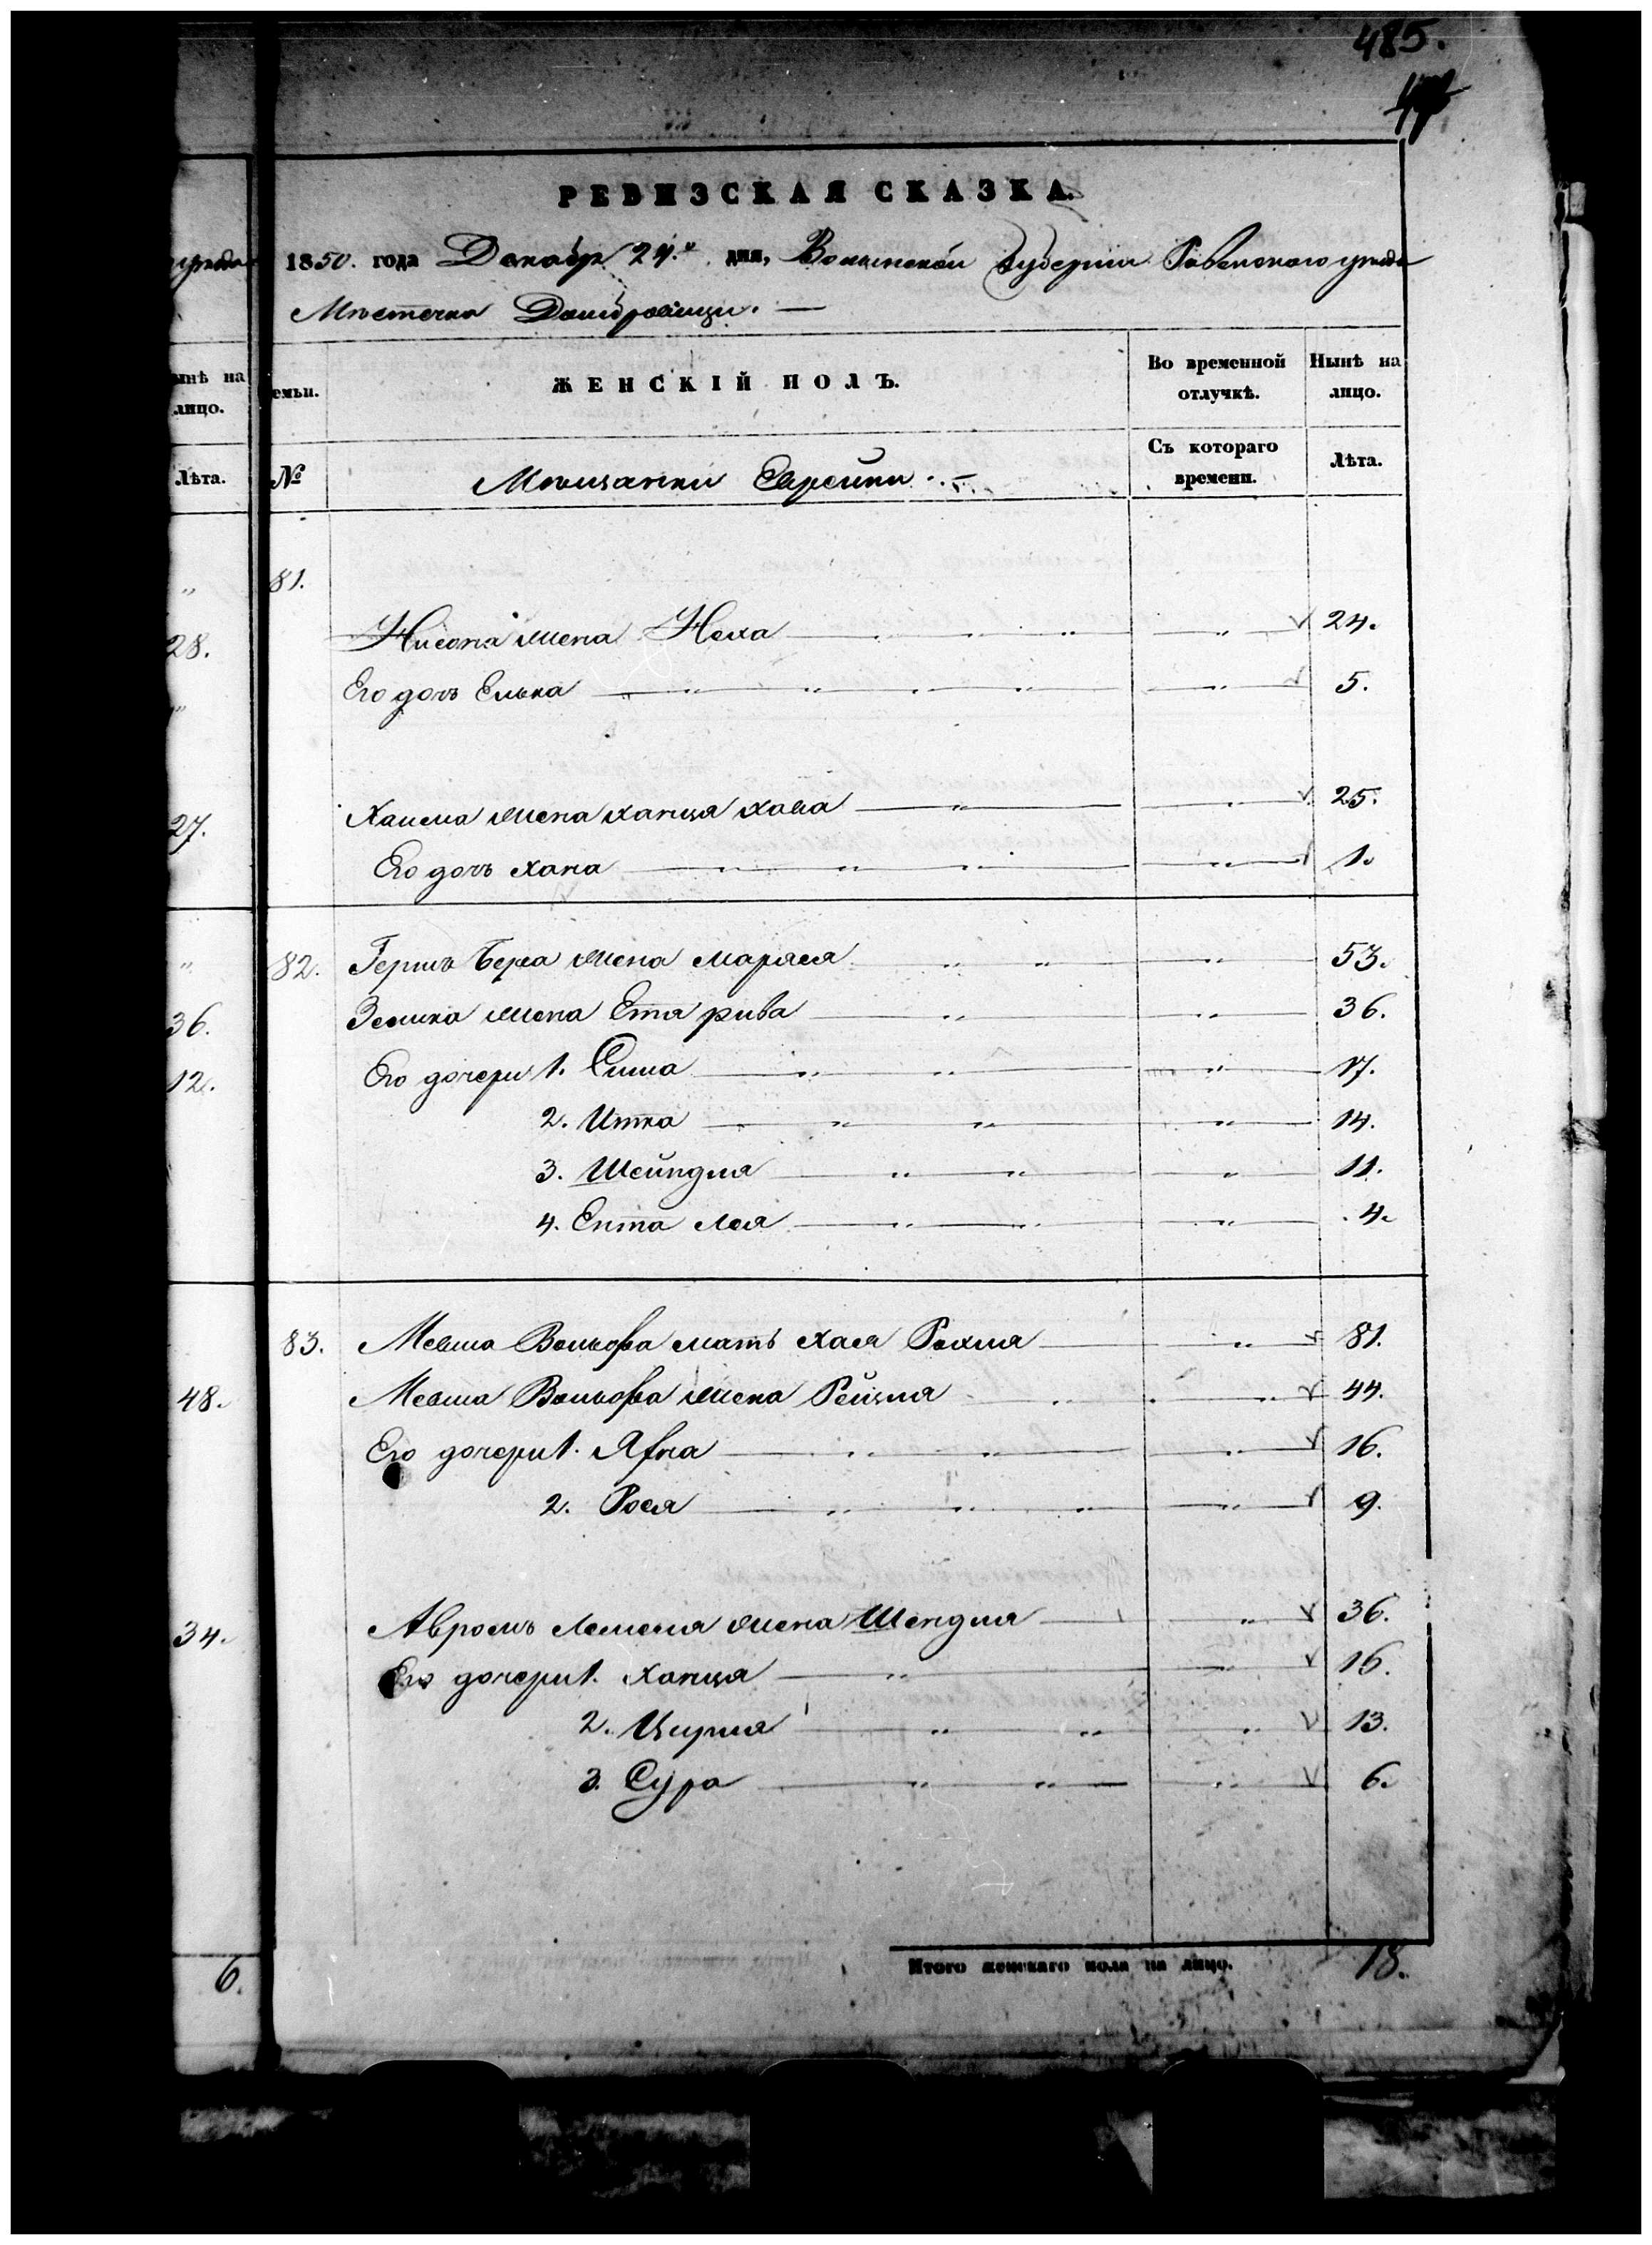 485.
РЕВИЗСКАЯ СКАЗКА.
уезда
1850. года Декабр 24.го дня, Волынской Губернии Ровенского уезда
Местечка Домбровици. —
ынѣ на лицо.
емьи.
ЖЕНСКІЙ ПОЛЪ.
Во временной отлучкѣ.
Нынѣ на лицо.
Лѣта.
№
Мѣщанки Еврейки. —
Съ котораго времени.
Лѣта.
" 81.
28. Нисона жена Неха " 24.
" Его дочь Елька " 5.
27. Хаима жена Ханця Хава " 25.
Его дочь Хана " 1.
" 82. Гершъ Берка жена Маряся " 53.
36. Зелика жена Ета рива " 36.
12. Его дочери 1. Сима " 17.
2. Итка " 14.
3. Шейндля " 11.
4. Ента Лея " 4.
83. Мевша Вольфа мать Хая Рохля " 81.
48. Мевша Вольфа жена Рейзля " 44.
Его дочери 1. " 16.
2. Рося " 9.
34. Авромъ Лемеля жена Шендля " 36.
Его дочери 1. Ханця " 16.
2. Цирля " 13.
3. Сура " 6.
6. Итого женскаго пола на лицо. 18.